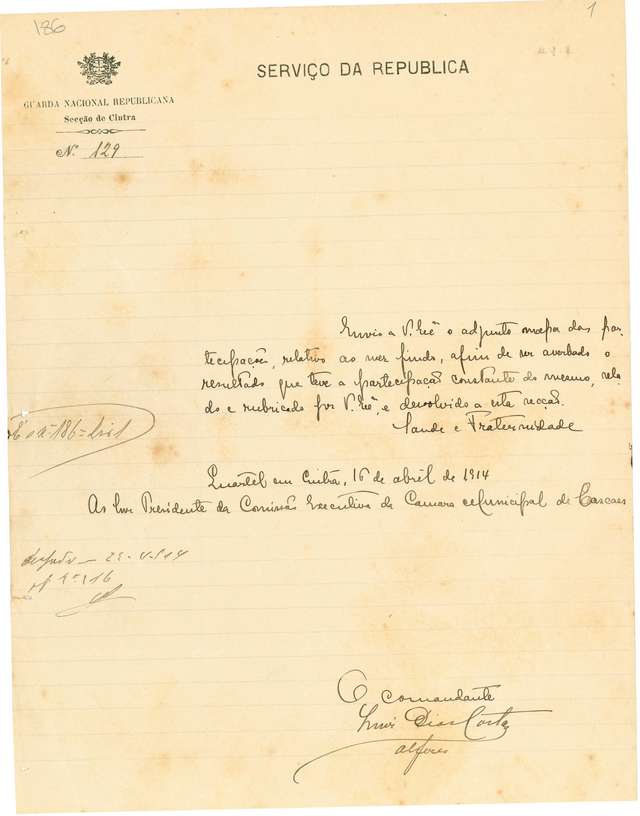 186
1
SERVIÇO DA REPUBLICA
GUARDA NACIONAL REPUBLICANA
Secção de Cintra
N.º 129
Envio a V. Exª o adjunto mapa das par-
tecipações, relativo ao mez findo, afim de ser averbado o
resultado que teve a partecipação constante do mesmo, sela-
do e rubricado por V. Exª e devolvido a esta secção.
Saude e Fraternidade
Quartel em Cintra, 16 de abril de 1914
Ao Exmo Presidente da Comissão Executiva da Camara Municipal de Cascaes
186
23-4-914
116
O Comandante
Luiz Dias Costa
alferes